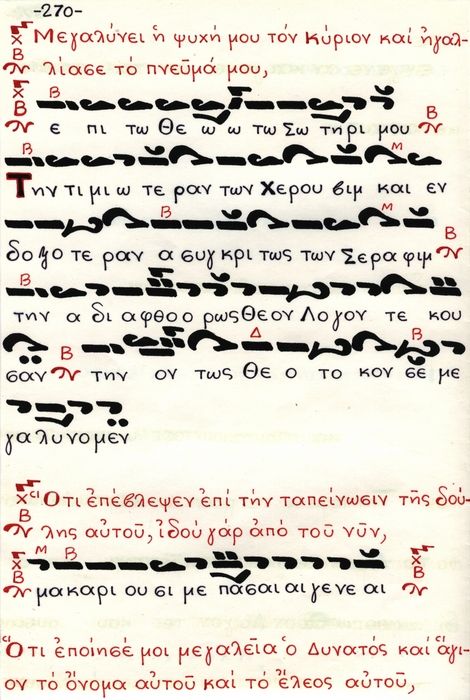 -270-
Μεγαλύνει ἡ ψυχή μου τόν Κύριον καί ἠγαλ-
λίασε τό πνεῦμά μου,
ε πι τω Θε ω ω τω Σω τηρι μου
Την τι μι ω τε ραν των Χερου βιμ και εν
δο ξο τε ραν α συγκρι τως των Σεραφιμ
την α δι α φθο ο ρως Θεον Λογον τε κου
σαν την ον τως Θε ο το κον σε με
γαλυνομεν
Ὅτι ἐπέβλεψεν ἐπί τήν ταπείνωσιν τῆς δού-
λης αὐτοῦ, ἰδού γάρ ἀπό τοῦ νῦν,
μακαρι ου σι με πασαι αι γενε αι
Ὅτι ἐποίησέ μοι μεγαλεῖα ὁ Δυνατός καί ἅγι-
ον τό ὄνομα αὐτοῦ καί τό ἔλεος αὐτοῦ,